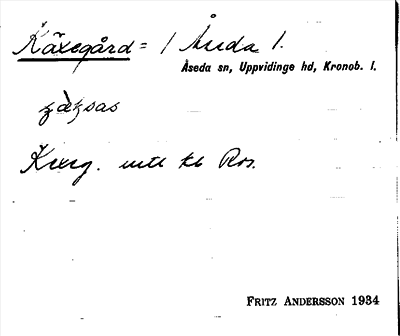 Käxegård = / Ånda 1.
Åseda sn, Uppvidinge hd, Kronob. l.
Kxrg. utl kb Ros.
FRITZ ANDERSSON 1934